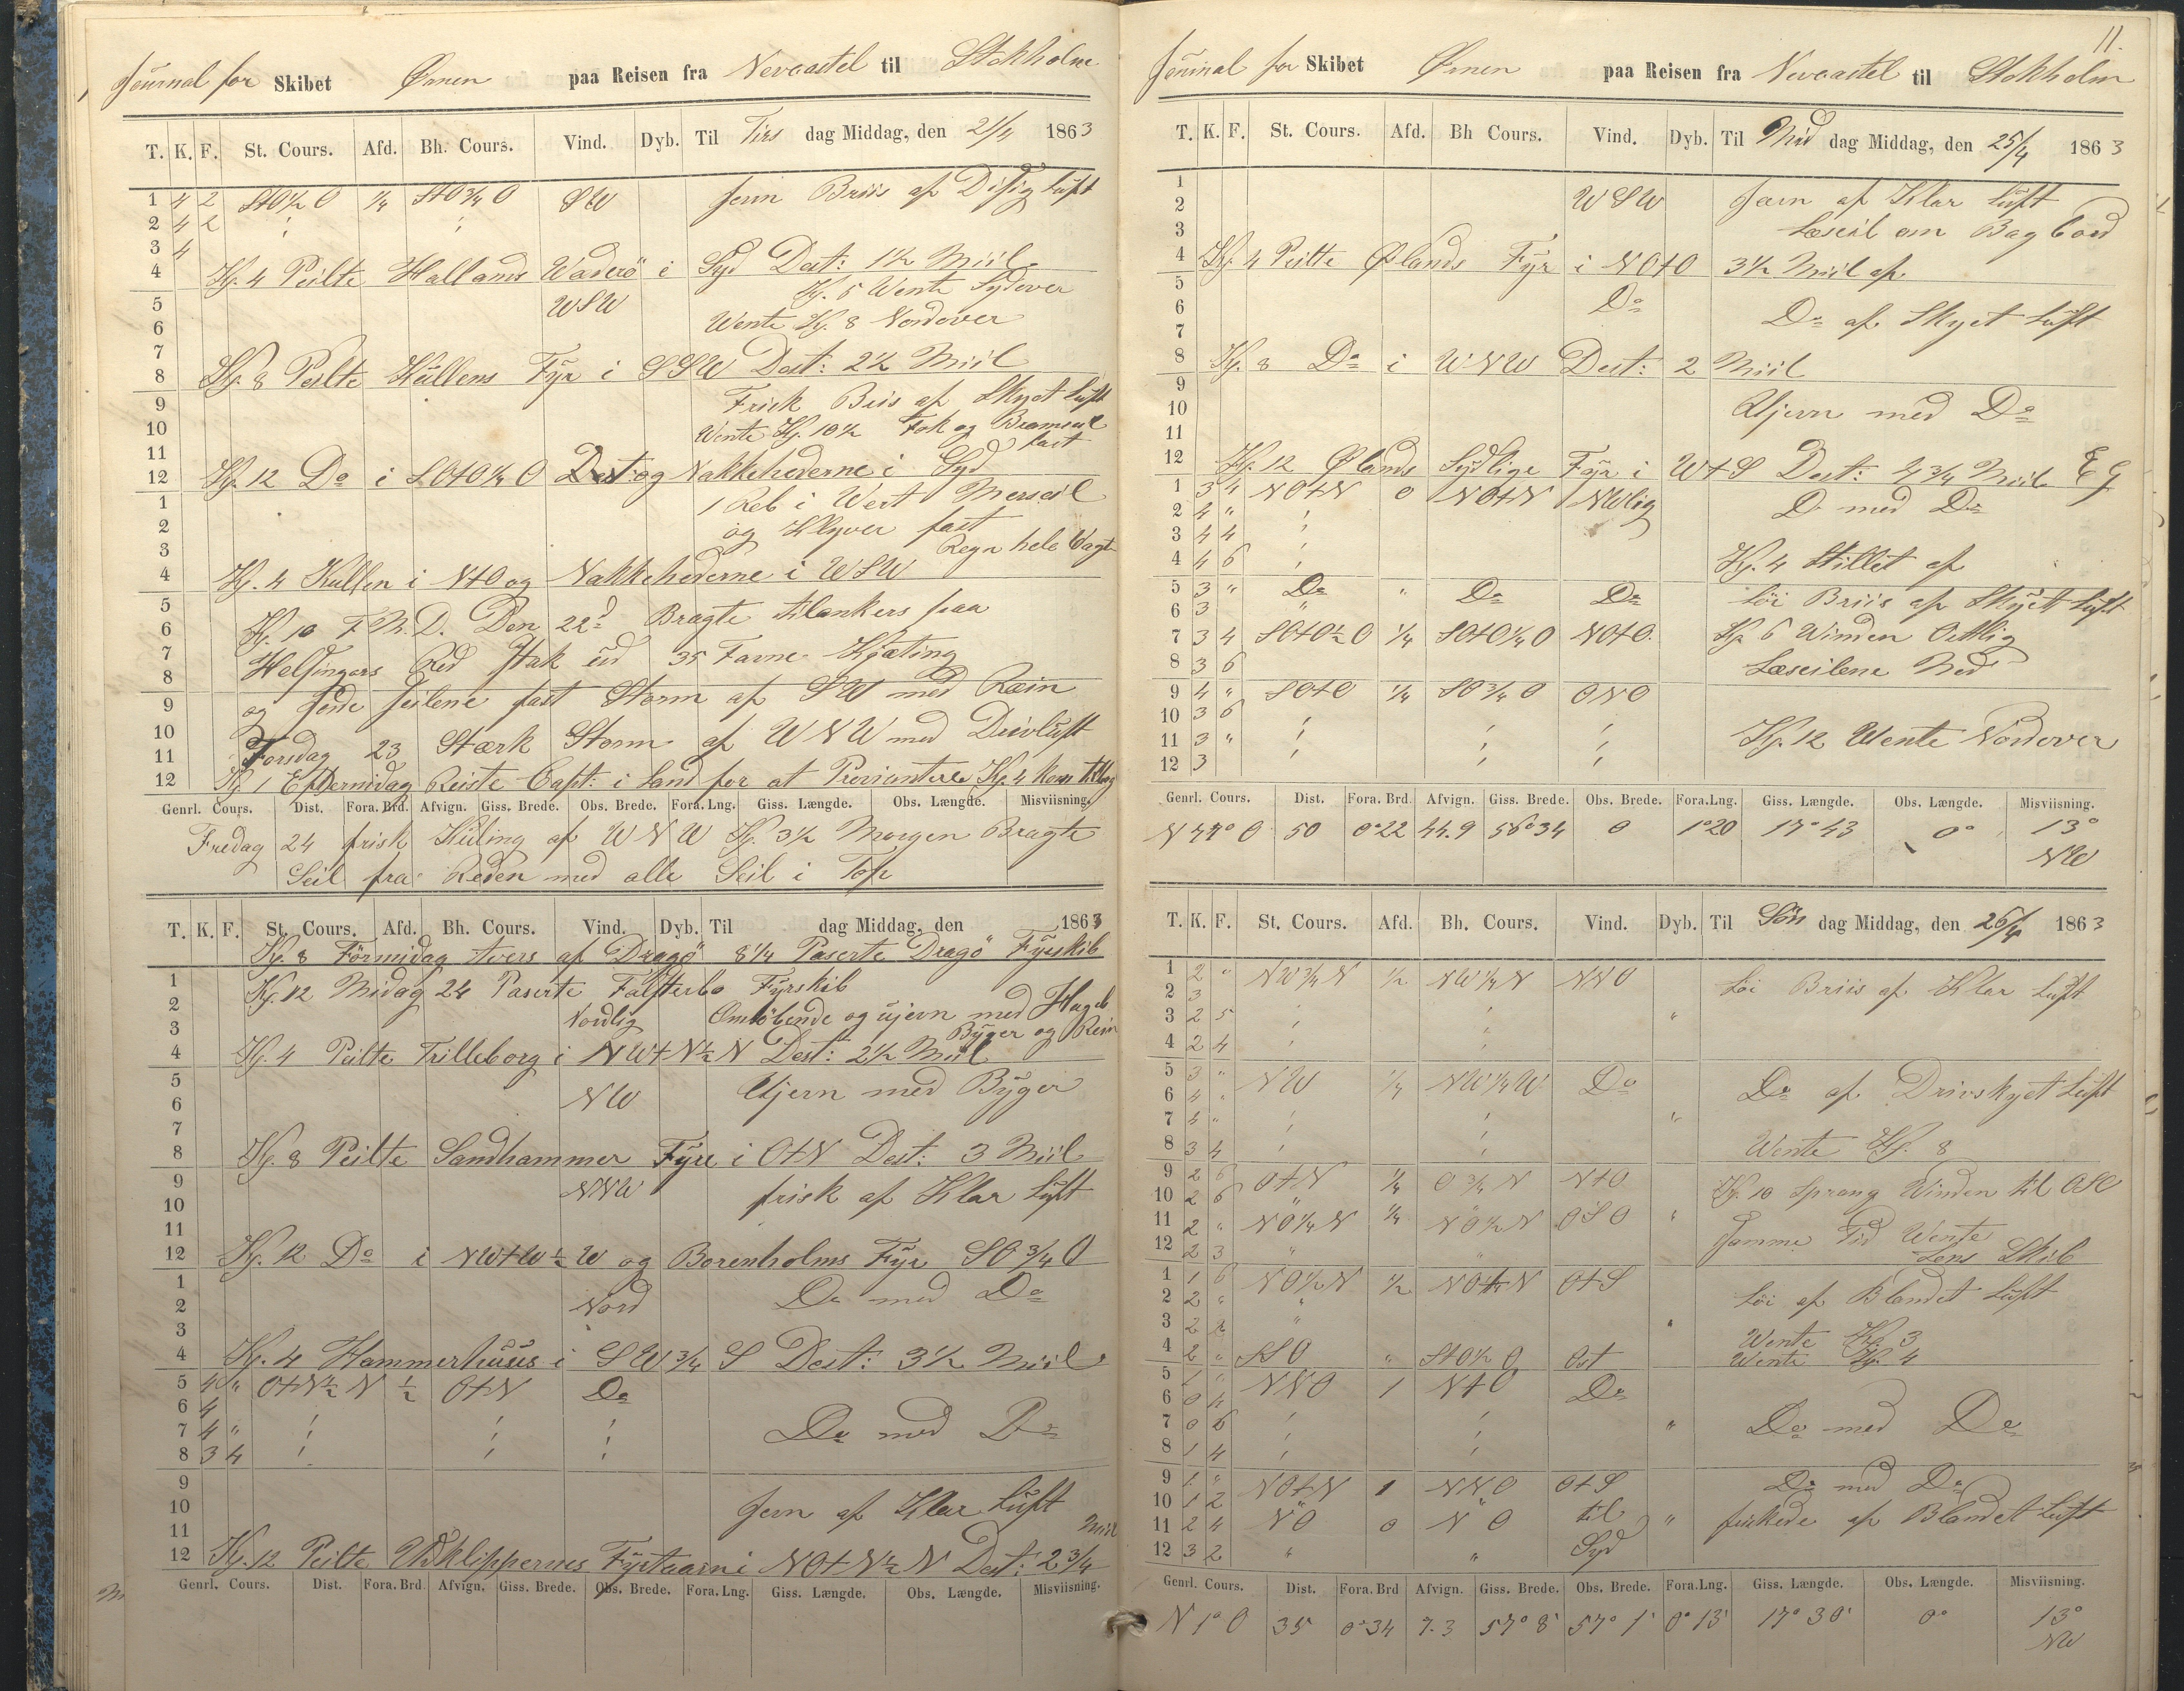 Journal for Skibet Ørnen paa Reisen fra Nevcastel til Stokholm
T. K. F. St. Cours. Afd. Bh. Cours. Vind. Dyb. Til Tirs dag Middag, den 21/4 1863
1 4 2 StO½O ¼ StO¾O SW Jevn Briis af Disig Luft
2 4 2
3 4
4 Kl. 4 Peilte Hallands Waderö i Syd Dest: 1½ Miil
Kl. 5 Wente Sydover
5 WSW
6 Wente Kl. 8 Nordover
7
8 Kl. 8 Peilte Kullens Fÿr i SSW Dest: 2½ Miil
9 Frisk Briis af Skyet Luft
10 Wente Kl. 10½ Fok og Bramseil fast
11
12 Kl. 12 Do i SOtO¼O Dest: og Nakkehederne i Syd
1 1 Reb i Wert Merseil
2 og Klyver fast
3 Regn hele Vagt
4 Kl. 4 Kullen i NtO og Nakkehederne i WSW
5 Kl. 10 F.M.D. Den 22d Bragte tilankers paa
6
7 Helsingørs Red Stak ud 35 Favne Kjæting
8
9 og Jorde Seilene fast Storm af SW med Rein
10 Torsdag 23 Stærk Storm af WNW med Drivluft
11
12 Kl. 1 Eftermidag Reiste Capt: i Land for at Proviantere Kl. 4 kom
Genrl. Cours. Dist. Fora. Brd. Afvign. Giss. Brede. Obs. Brede. Fora. Lng. Giss. Længde. Obs. Længde. Misviisning.
Fredag 24 frisk Kuling af WNW Kl. 3½ Morgen Bragte
Seil fra Reden med alle Seil i Top
T. K. F. St. Cours. Afd. Bh. Cours. Vind. Dyb. Til dag Middag, den 1863
Kl. 8 Förmidag tvers af Dragö 8¼ Paserte Dragö Fÿrskib
1 Kl. 12 Midag 24 Paserte Falsterbo Fÿrskib
2 Nordlig Omlöbende og ujevn med Hagel
3 Bÿger og Rein
4 Kl. 4 Peilte Trilleborg i NWtN½N Dest: 2½ Miil
5 NW Ujevn med Bÿger
6
7
8 Kl. 8 Peilte Sandhammer Fÿre i OtN Dest: 3 Miil
9 NNW frisk af Klar Luft
10
11
12 Kl. 12 Do i NWtW½W og Borenholms Fÿr SO¾O
1 Nord Do med Do
2
3
4 Kl. 4 Hammerhuus i SW¾S Dest: 3½ Miil
5 4 " OtN½N ½ OtN Do
6 4
7 4 " Do med Do
8 3 4
9
10 Jevn af Klar Luft
11
12 Kl. 12 Peilte Udklippernes Fÿrtaarn i NOtN½N Dest: 2¾ Miil
Genrl. Cours. Dist. Fora. Brd Afvign. Giss. Brede. Obs. Brede. Fora. Lng. Giss. Længde. Obs. Længde. Misviisning.
11.
Journal for Skibet Ørnen paa Reisen fra Nevcastel til Stokholm
T. K. F. St. Cours. Afd. Bh Cours. Vind. Dyb. Til Mid dag Middag, den 25/4 1863
1 WSW Jævn af Klar Luft
2
3 Læseil om Bagbord
4 Kl. 4 Peilte Ølands Fÿr i NOtO 3½ Miil af
5 Do
6 Do af Skyet Luft
7
8 Kl. 8 Do i WNW Dest: 2 Miil
9
10 Ujevn med Do
11
12 Kl. 12 Ølands Sÿdlige Fÿr i WtS Dest: 4¾ Miil EG
1 3 4 NOtN 0 NOtN NWlig Do med Do
2 4 "
3 4 4
4 4 6 Kl. 4 Stillet af
5 3 " Do " Do Do Löi Briis af Skÿet Luft
6 3
7 3 4 SOtO½O ¼ SOtO¼O NOtO Kl. 6 Winden Ostlig
8 3 6 Læseilene Ned
9 4 " SOtO ¼ SO¾O ONO
10 3 6
11 3 " Kl. 12 Wente Nordover
12 3
Genrl. Cours. Dist. Fora. Brd Afvign. Giss. Brede. Obs. Brede. Fora. Lng. Giss. Længde. Obs. Længde. Misviisning.
N 77° O 50 0°22 44.9 56°34 0 1°20 17°43 0° 13° NW
T. K. F. St. Cours. Afd. Bh. Cours. Vind. Dyb. Til Sön dag Middag, den 26/4 1863
1 2 " NW¾N ½ NW¼N NNO Löi Briis af Klar Luft
2 3
3 2 5 "
4 2 4
5 3 " NW ¼ NW¼W Do Do af Drivskyet Luft
6 4 "
7 4 " "
8 3 4 Wente Kl. 8
9 2 6 OtN ¼ O¾N NtO Kl. 10 Sprang Winden til OSO
10 2 6 "
11 2 " NO¼N ¼ NO½N OSO " Samme Tid Wente
12 2 3 " " Lens Skib
1 1 6 NO½N ½ OtS Löi af Blandet Luft
2 2 " "
3 2 2 " Wente Kl. 3
4 2 " SSO " StO½O Ost Wente Kl. 4
5 1 " NNO 1 NtO Do
6 0 4
7 0 6 " Do med Do
8 1 4
9 1 " NOtN 1 NNO OtS Do med Do
10 1 2 " " til
11 2 4 NO 0 NO " friskede af Blandet Luft
12 3 2 " " Syd
Genrl. Cours. Dist. Fora. Brd Afvign. Giss. Brede. Obs. Brede. Fora. Lng. Giss. Længde. Obs. Længde. Misviisning.
N 1° O 35 0°34 7.3 57°8' 57°1' 0°13' 17°30' 0° 13° NW